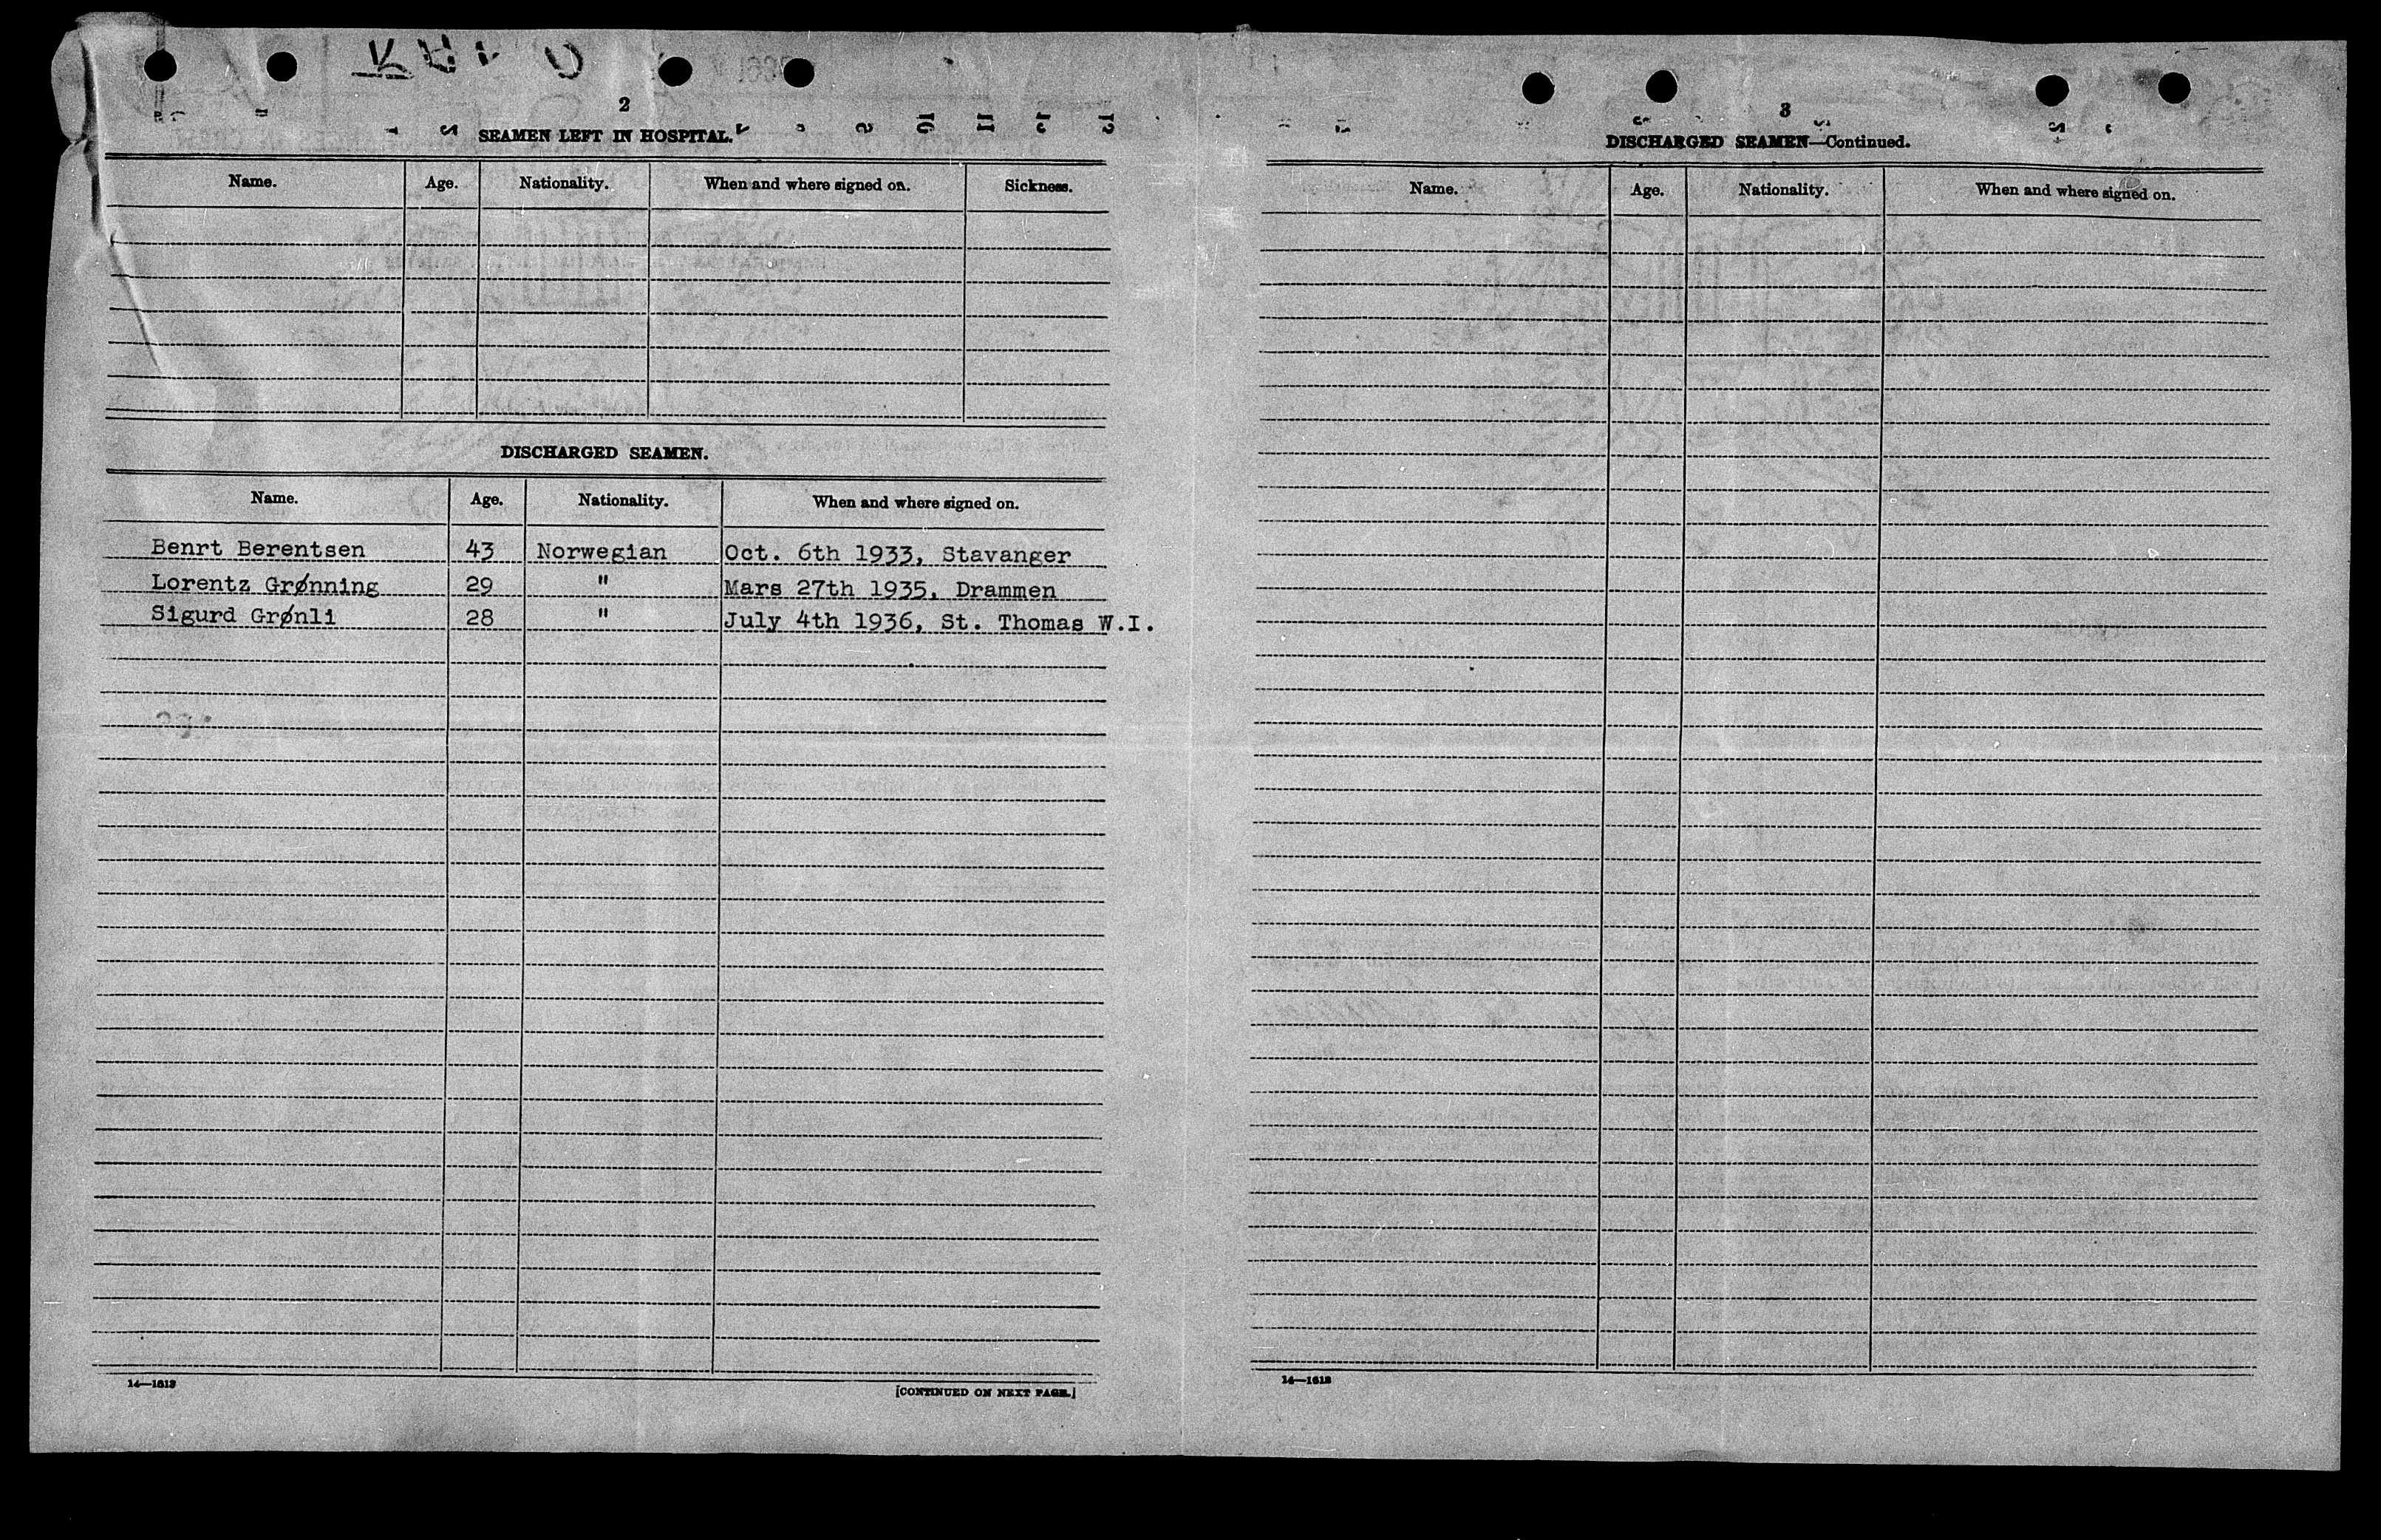 2
SEAMEN LEFT IN HOSPITAL.
Name. Age. Nationality. When and where signed on. Sickness.
DISCHARGED SEAMEN.
Name. Age. Nationality. When and where signed on.
Benrt Berentsen 43 Norwegian Oct. 6th 1933, Stavanger
Lorentz Grønning 29 " Mars 27th 1935, Drammen
Sigurd Grønli 28 " July 4th 1936, St. Thomas W.I.
14—1613
[CONTINUED ON NEXT PAGE.]
3
DISCHARGED SEAMEN—Continued.
Name. Age. Nationality. When and where signed on.
14—1613